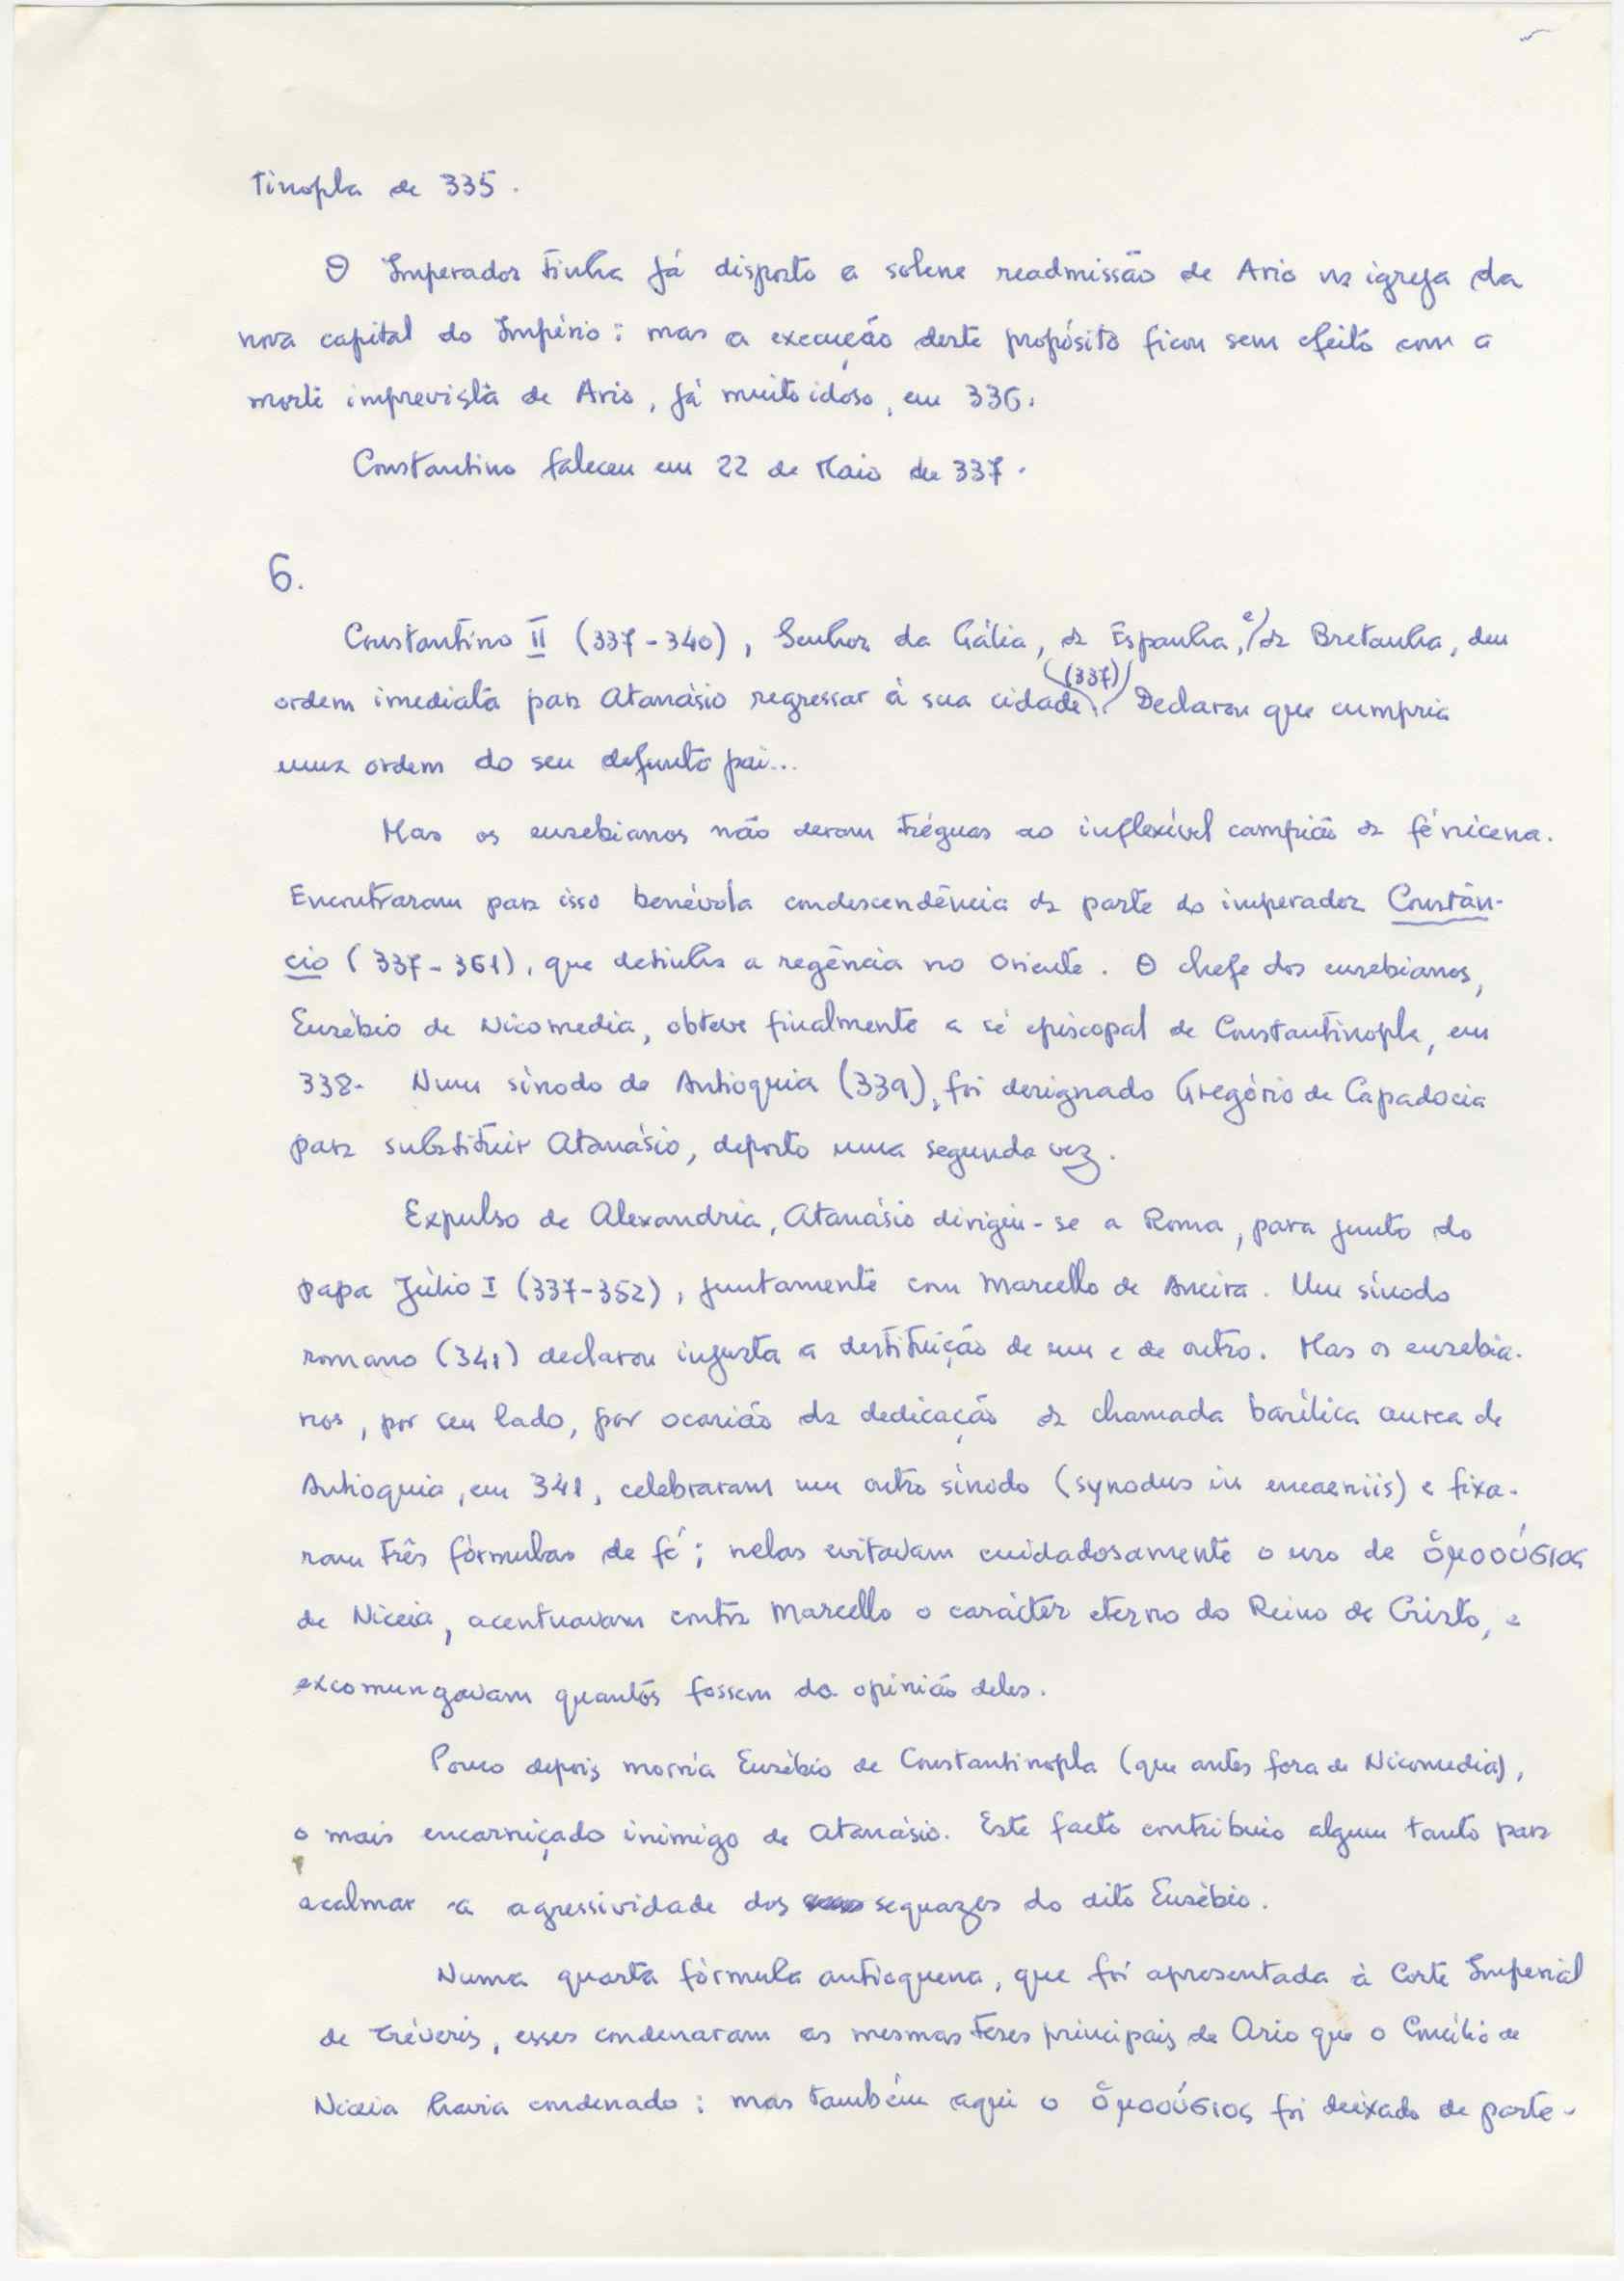 tinopla de 335.
O Imperador tinha já disposto a solene readmissão de Ario na igreja da
nova capital do Império: mas a execução deste propósito ficou sem efeito com a
morte imprevista de Ario, já muito idoso, em 336.
Constantino faleceu em 22 de Maio de 337.
6.
Constantino II (337-340), Senhor da Gália, da Espanha, e da Bretanha, deu
ordem imediata para Atanásio regressar à sua cidade (337). Declarou que cumpria
uma ordem do seu defunto pai...
Mas os eusebianos não deram tréguas ao inflexível campião da fé nicena.
Encontraram para isso benévola condescendência da parte do imperador Constân-
cio (337-361), que detinha a regência no Oriente. O chefe dos eusebianos,
Eusébio de Nicomedia, obteve finalmente a sé episcopal de Constantinopla, em
338. Num sínodo de Antioquia (339), foi designado Gregório de Capadocia
para substituir Atanásio, deposto uma segunda vez.
Expulso de Alexandria, Atanásio dirigiu-se a Roma, para junto do
papa Júlio I (337-352), juntamente com Marcello de Ancira. Um sínodo
romano (341) declarou injusta a destituição de um e de outro. Mas os eusebia-
nos, por seu lado, por ocasião da dedicação da chamada basílica aurea de
Antioquia, em 341, celebraram um outro sínodo (synodus in encaeniis) e fixa-
ram três fórmulas de fé; nelas evitavam cuidadosamente o uso de ὁμοούσιος
de Niceia, acentuavam contra Marcello o carácter eterno do Reino de Cristo, e
excomungavam quantos fossem da opinião deles.
Pouco depois morria Eusébio de Constantinopla (que antes fora de Nicomedia),
o mais encarniçado inimigo de Atanásio. Este facto contribuio algum tanto para
acalmar a agressividade dos sequazes do dito Eusébio.
Numa quarta fórmula antioquena, que foi apresentada à Corte Imperial
de Tréveris, esses condenaram as mesmas teses principais de Ario que o Concílio de
Niceia havia condenado: mas também aqui o ὁμοούσιος foi deixado de parte.